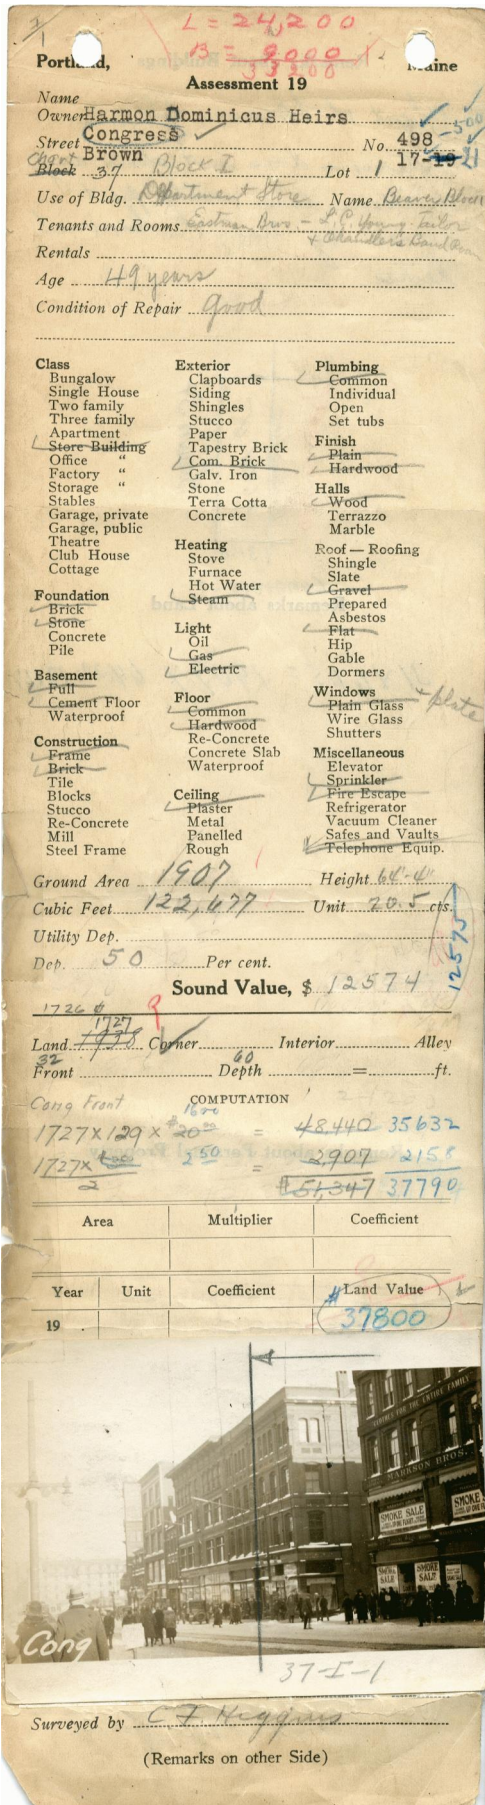 1
1
L = 24,200
B = 9000
33200
Portland,
Maine
Assessment 19
Name
Owner Harmon Dominicus Heirs
Street Congress No. 498 -500
Brown 17-19 21
Chart Block 37 Block I Lot 1
Use of Bldg. Department Store Name Beaver Block
Tenants and Rooms Eastman Bros. - L.C. Young-Tailor
+ Chandler's Band Room
Rentals
Age 49 years
Condition of Repair good
Class
Bungalow
Single House
Two family
Three family
Apartment
Store Building
Office "
Factory "
Storage "
Stables
Garage, private
Garage, public
Theatre
Club House
Cottage
Foundation
Brick
Stone
Concrete
Pile
Basement
Full
Cement Floor
Waterproof
Construction
Frame
Brick
Tile
Blocks
Stucco
Re-Concrete
Mill
Steel Frame
Exterior
Clapboards
Siding
Shingles
Stucco
Paper
Tapestry Brick
Com. Brick
Galv. Iron
Stone
Terra Cotta
Concrete
Heating
Stove
Furnace
Hot Water
Steam
Light
Oil
Gas
Electric
Floor
Common
Hardwood
Re-Concrete
Concrete Slab
Waterproof
Ceiling
Plaster
Metal
Panelled
Rough
Plumbing
Common
Individual
Open
Set tubs
Finish
Plain
Hardwood
Halls
Wood
Terrazzo
Marble
Roof — Roofing
Shingle
Slate
Gravel
Prepared
Asbestos
Flat
Hip
Gable
Dormers
Windows + plate
Plain Glass
Wire Glass
Shutters
Miscellaneous
Elevator
Sprinkler
Fire Escape
Refrigerator
Vacuum Cleaner
Safes and Vaults
Telephone Equip.
Ground Area 1907 Height 64'-4"
Cubic Feet 122,677 Unit 20.5 cts.
Utility Dep.
12575
Dep. 50 Per cent.
Sound Value, $ 12574
1726
1727
Land 1938 Corner Interior Alley
32 60
Front Depth = ft.
Cong Front COMPUTATION
16 00
1727 x 129 x $20 00 = 48,440 35632
1727 x 2 50 = 2,907 2158
2 $51,347 37790
Area Multiplier Coefficient
Year Unit Coefficient Land Value
19 $37800
CLOTHES FOR THE ENTIRE FAMILY
MARKSON BROS.
SMOKE SALE
SMOKE
SMOKE SALE
SMOKE SALE
Cong
37-I-1
Surveyed by C. F. Higgins
(Remarks on other Side)